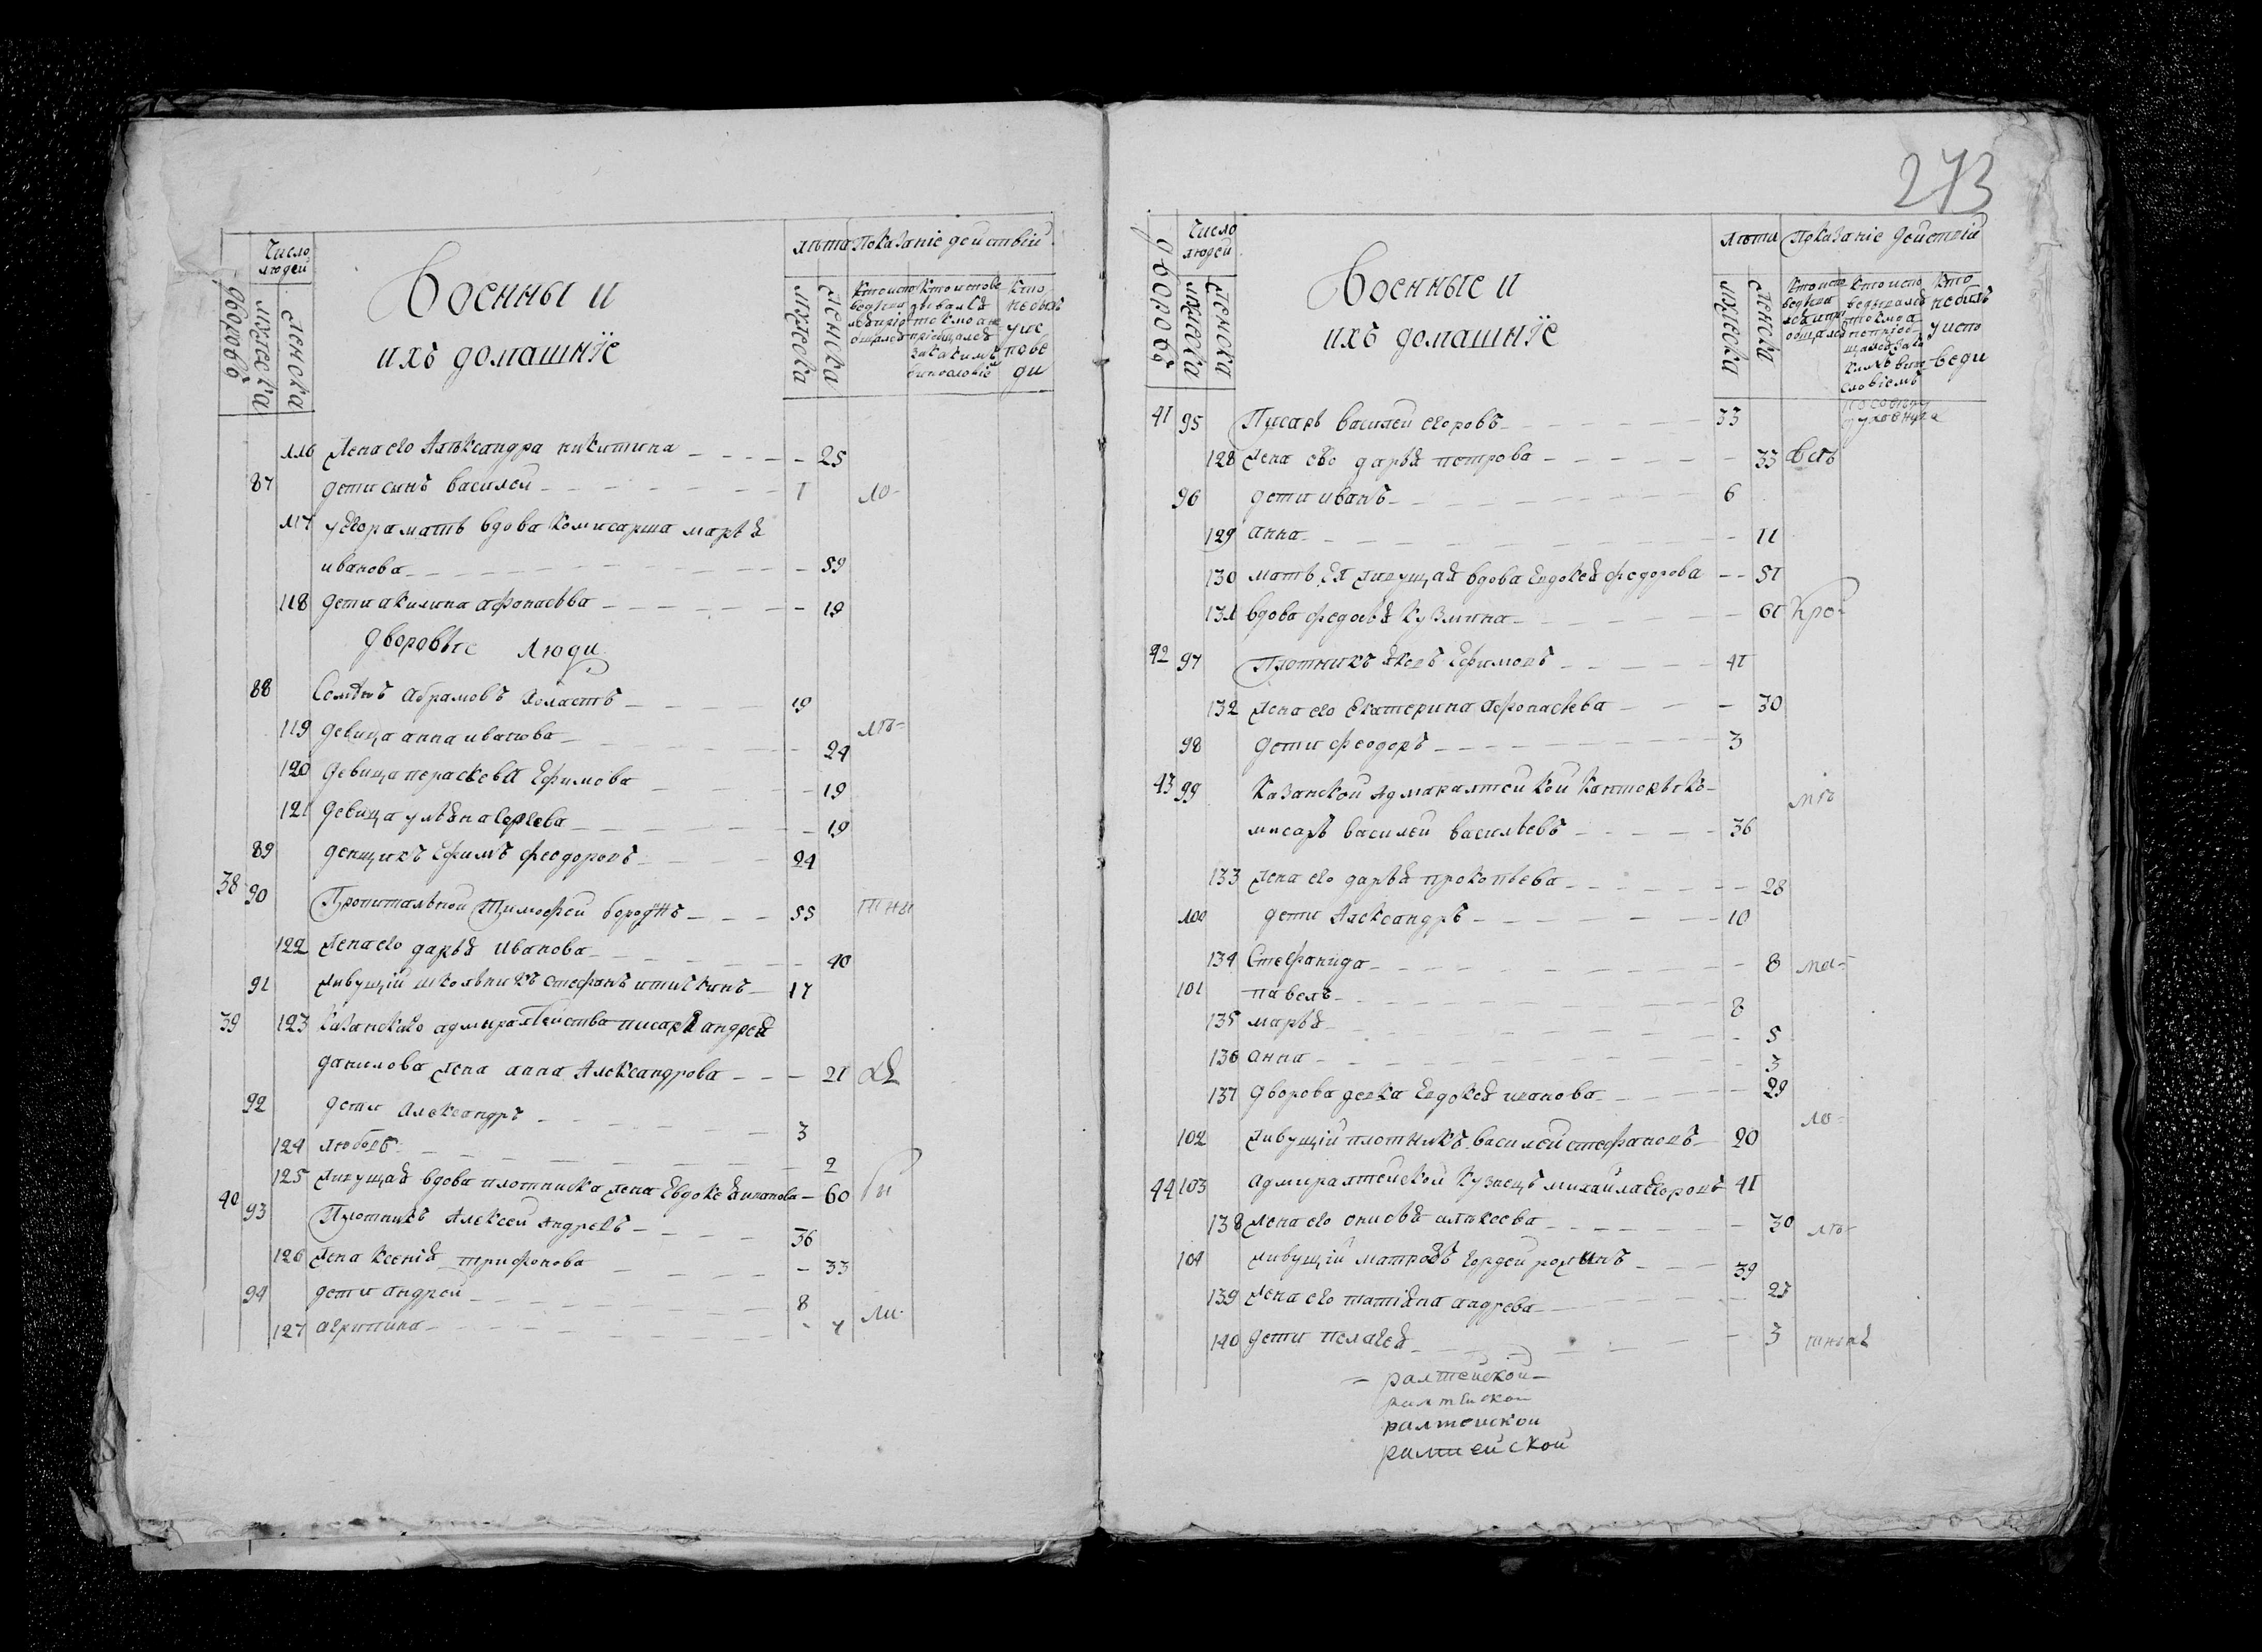 Число людей
дворовъ
мужеска
женска
Военны и
ихъ домашнїе
лѣта
мужеска
женска
Показанїе действій
кто
не былъ
у ис
пове
ди
116 Жена его Александра никитина 25
87 дети сынъ василей 1 лю-
117 у егора мать вдова комисарша марья
иванова 59
118 дети акилина афонасьва 19
дворовые люди
88 Семенъ абрамовъ холастъ 19
119 девица анна иванова 24
120 девица параскева ефимова 19
121 девица ульяна сергева 19
89 денщикъ ефимъ феодоровъ 24
38 90 Пропитальной Тимофей 55
122 Жена его дарья иванова 40
91 живущій школьникъ стефанъ 17
39 123 казанскаго адмиралтейства писаря андрея
данилова жена анна александрова 21
92 дети александръ 3
124 любовь 2
125 живущая вдова плотника жена евдокея иванова 60
40 93 Плотникъ алексей андреевъ 36
126 жена ксенія трифонова 33
94 дети андрей 8
127 агрипина 4 ли-
273
Число людей
дворовъ
мужеска
женска
Военные и
ихъ домашнїе
лѣта
мужеска
женска
Показанїе действій
кто
не былъ
у испо
веди
41 95 Писарь василей егоровъ 33
128 жена ево дарья петрова 33 все
96 дети иванъ 6
129 анна 11
130 мать ея живущая вдова евдокея федорова 51
131 вдова федосья кузмина 61 кро-
42 97 Плотникъ яковъ ефимовъ 41
132 жена его екатерина афонасьева 30
98 дети феодоръ 3
43 99 казанской адмиралтейской канторы ко-
мисаръ василей васильевъ 36
133 жена его дарья прокопьева 28
100 дети александръ 10
134 стефанида 8 ма-
101 павелъ 8
135 марья 5
136 анна 3
137 дворова девка евдокея иванова 29
102 живущій плотникъ василей стефановъ 20
44 103 адмиралтейской кузнецъ михайла егоровъ 41
138 жена его анисья алексеева 30
104 живущій матрозъ гордей 39
139 жена его татіяна андрева 27
140 дети пелагея 3
ралтейской
ралтейской
ралтейской
ралтейской